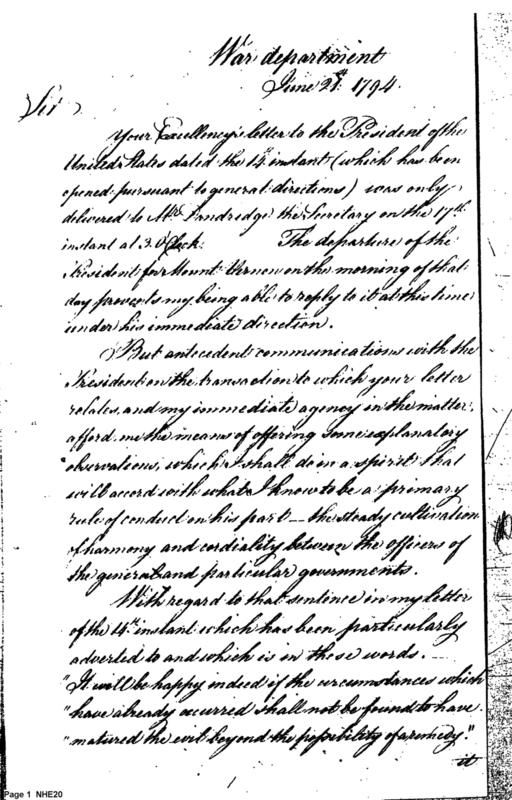 War department
June 21st 1794.
Sir
Your Excellency's letter to the President of the
United States dated the 14th instant (which has been
opened pursuant to general directions) was only
delivered to Mr. Dandredge the Secretary on the 17th
instant at 3. OClock. The departure of the
President for Mount Vernon on the morning of that
day prevents my being able to reply to it at this time
under his immediate direction.
But antecedent communications with the
President on the transaction to which your letter
relates, and my immediate agency in the matter,
afford me the means of offering some explanatory
observations, which I shall do in a spirit that
will accord with what I know to be a primary
rule of conduct on his part — the steady cultivation
of harmony and cordiality between the officers of
the general and particular governments.
With regard to that sentence in my letter
of the 14th instant which has been particularly
adverted to and which is in these words. —
"It will be happy indeed if the circumstances which
"have already occurred shall not be found to have
"matured the evil beyond the possibility of a remedy."
it
1
Page 1 NHE20